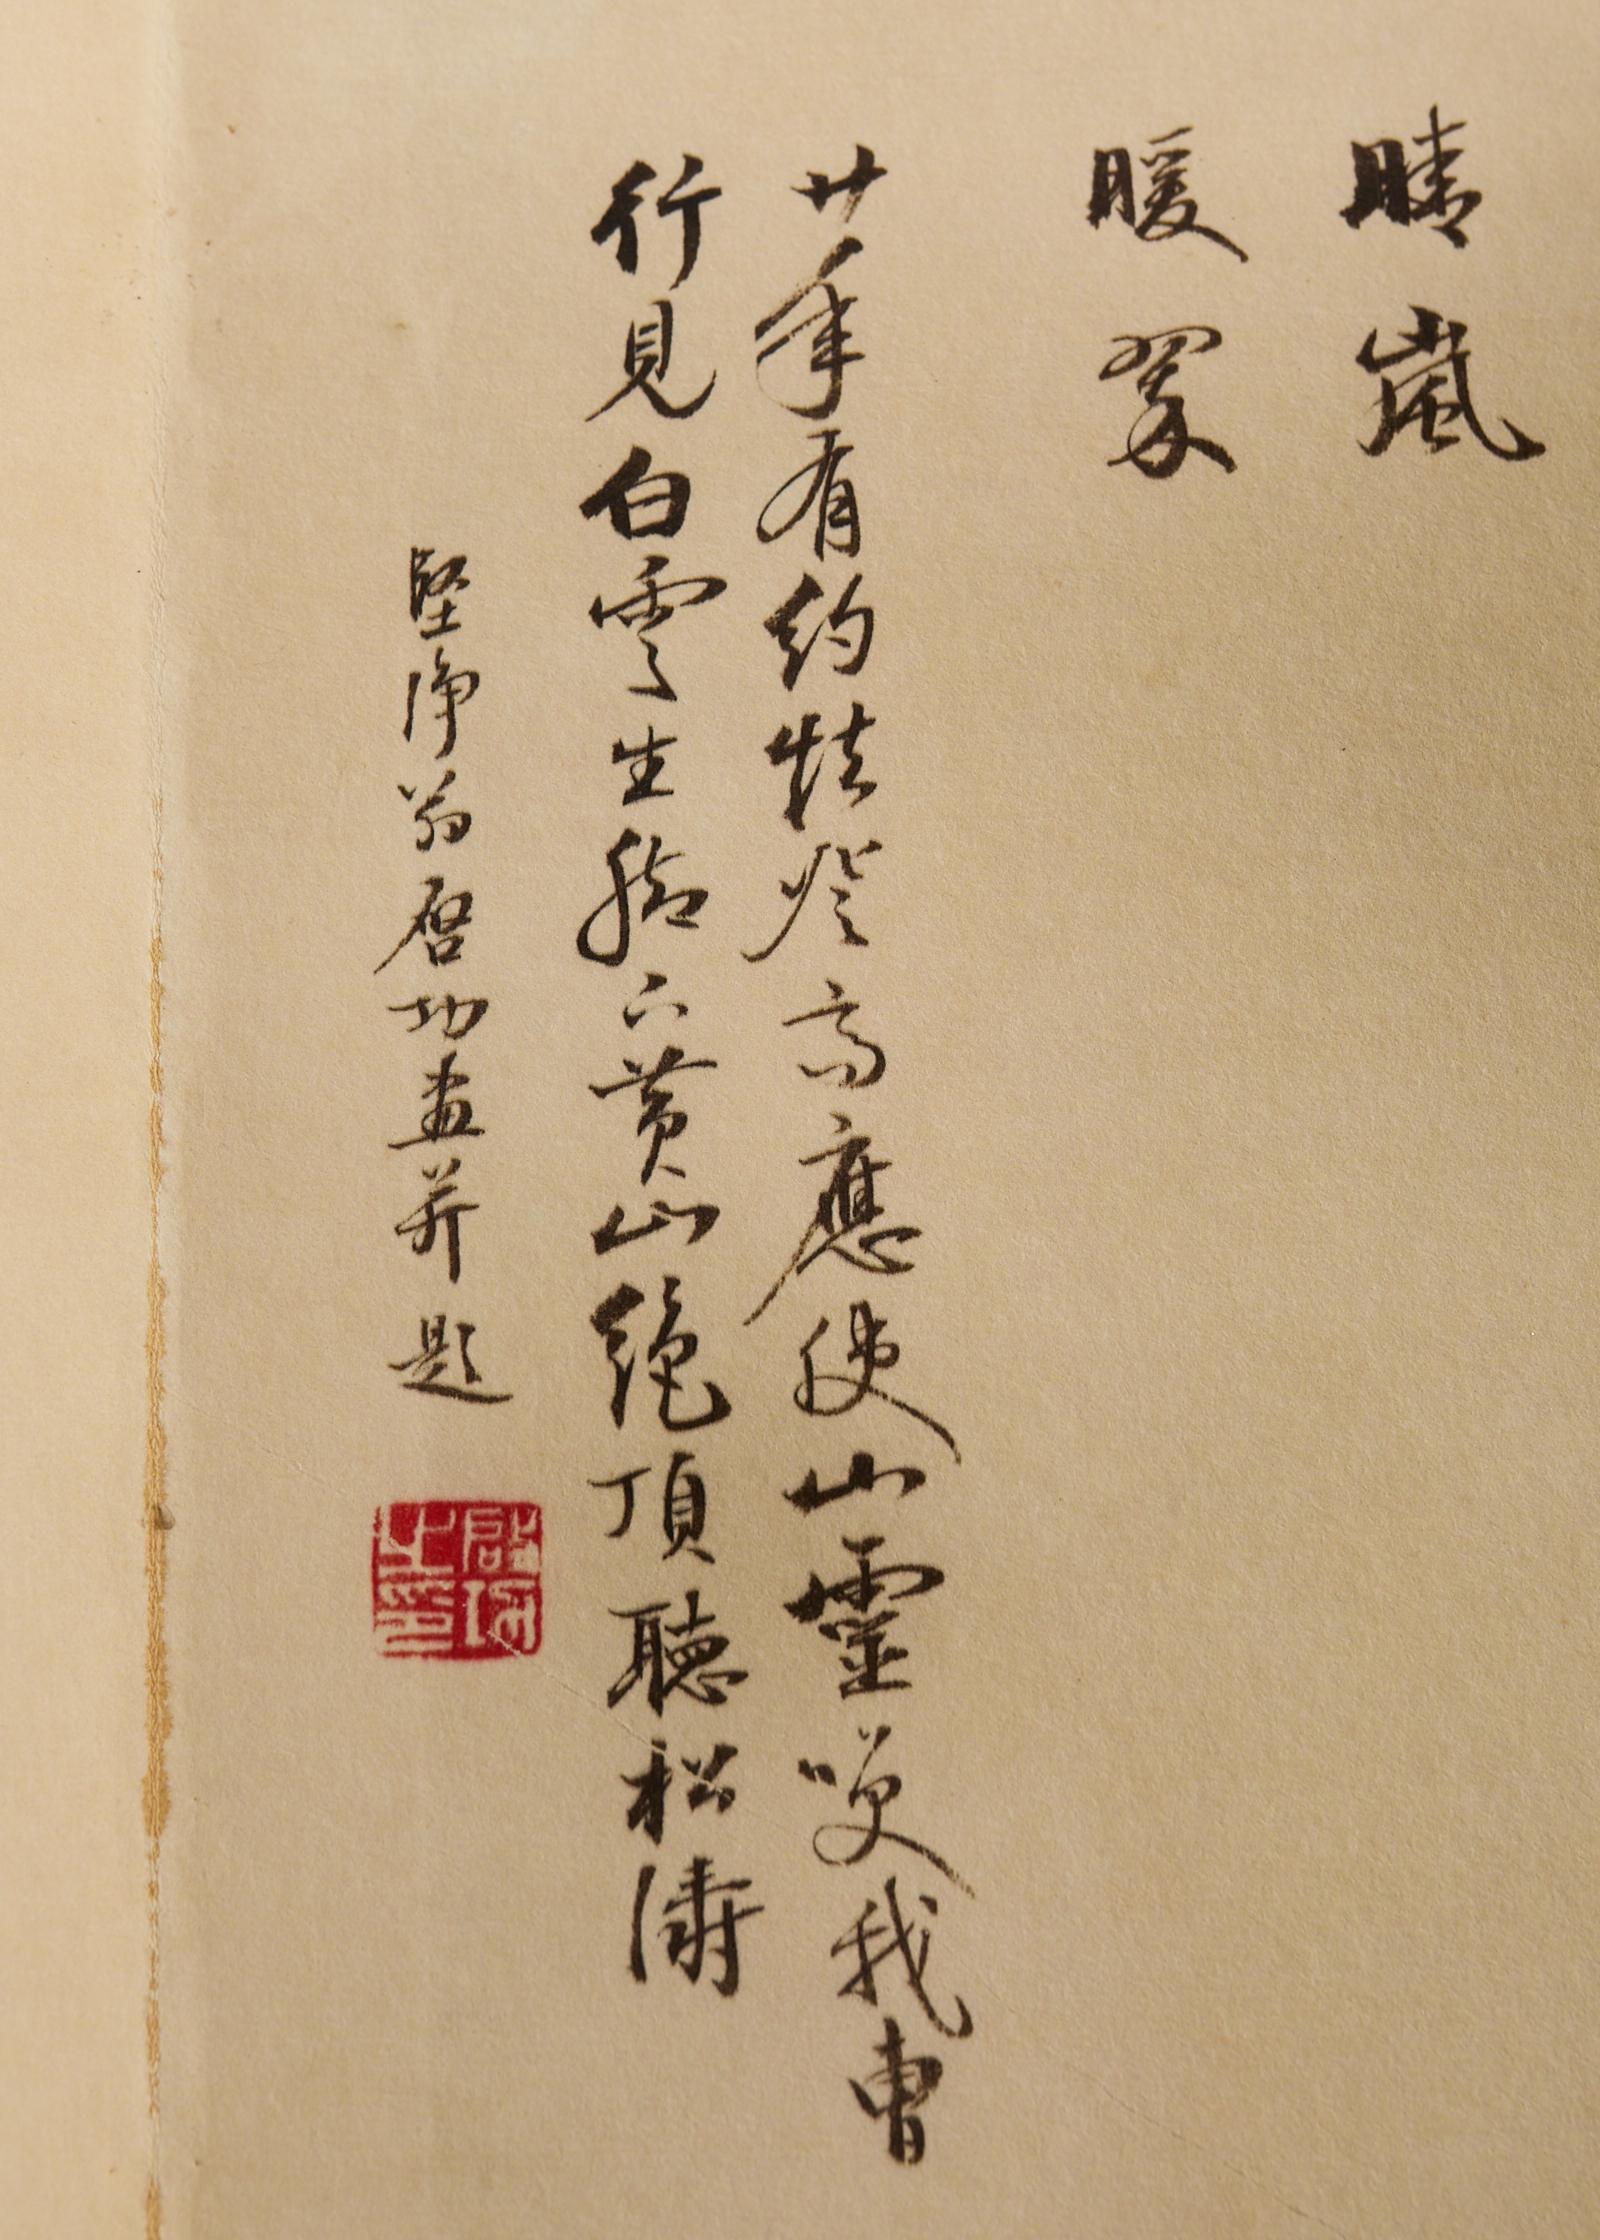 晴嵐
暖翠
廿年有約怯登高應使山靈咲我曹
行見白雲生脚下黃山絕頂聽松濤
堅淨翁启功畫并題
启功之印